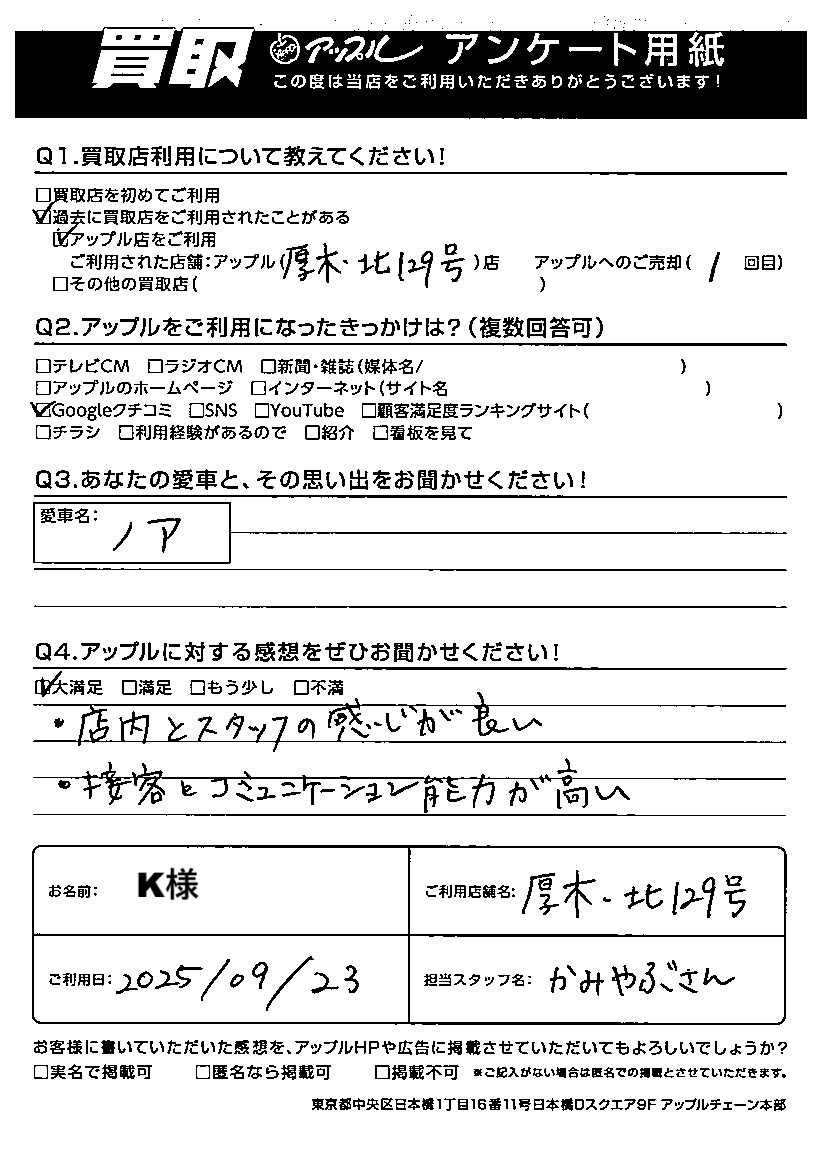 買取 アップル アンケート用紙
この度は当店をご利用いただきありがとうございます!
Q1.買取店利用について教えてください!
□買取店を初めてご利用
☑過去に買取店をご利用されたことがある
☑アップル店をご利用
ご利用された店舗:アップル(厚木・北129号)店 アップルへのご売却(1回目)
□その他の買取店( )
Q2.アップルをご利用になったきっかけは?(複数回答可)
□テレビCM □ラジオCM □新聞・雑誌(媒体名/ )
□アップルのホームページ □インターネット(サイト名 )
☑Googleクチコミ □SNS □YouTube □顧客満足度ランキングサイト( )
□チラシ □利用経験があるので □紹介 □看板を見て
Q3.あなたの愛車と、その思い出をお聞かせください!
愛車名: ノア
Q4.アップルに対する感想をぜひお聞かせください!
☑大満足 □満足 □もう少し □不満
・店内とスタッフの感じが良い
・接客とコミュニケーション能力が高い
お名前: K様 ご利用店舗名: 厚木・北129号
ご利用日: 2025/09/23 担当スタッフ名: かみやぶさん
お客様に書いていただいた感想を、アップルHPや広告に掲載させていただいてもよろしいでしょうか?
□実名で掲載可 □匿名なら掲載可 □掲載不可 ※ご記入がない場合は匿名での掲載とさせていただきます。
東京都中央区日本橋1丁目16番11号日本橋Dスクエア9F アップルチェーン本部